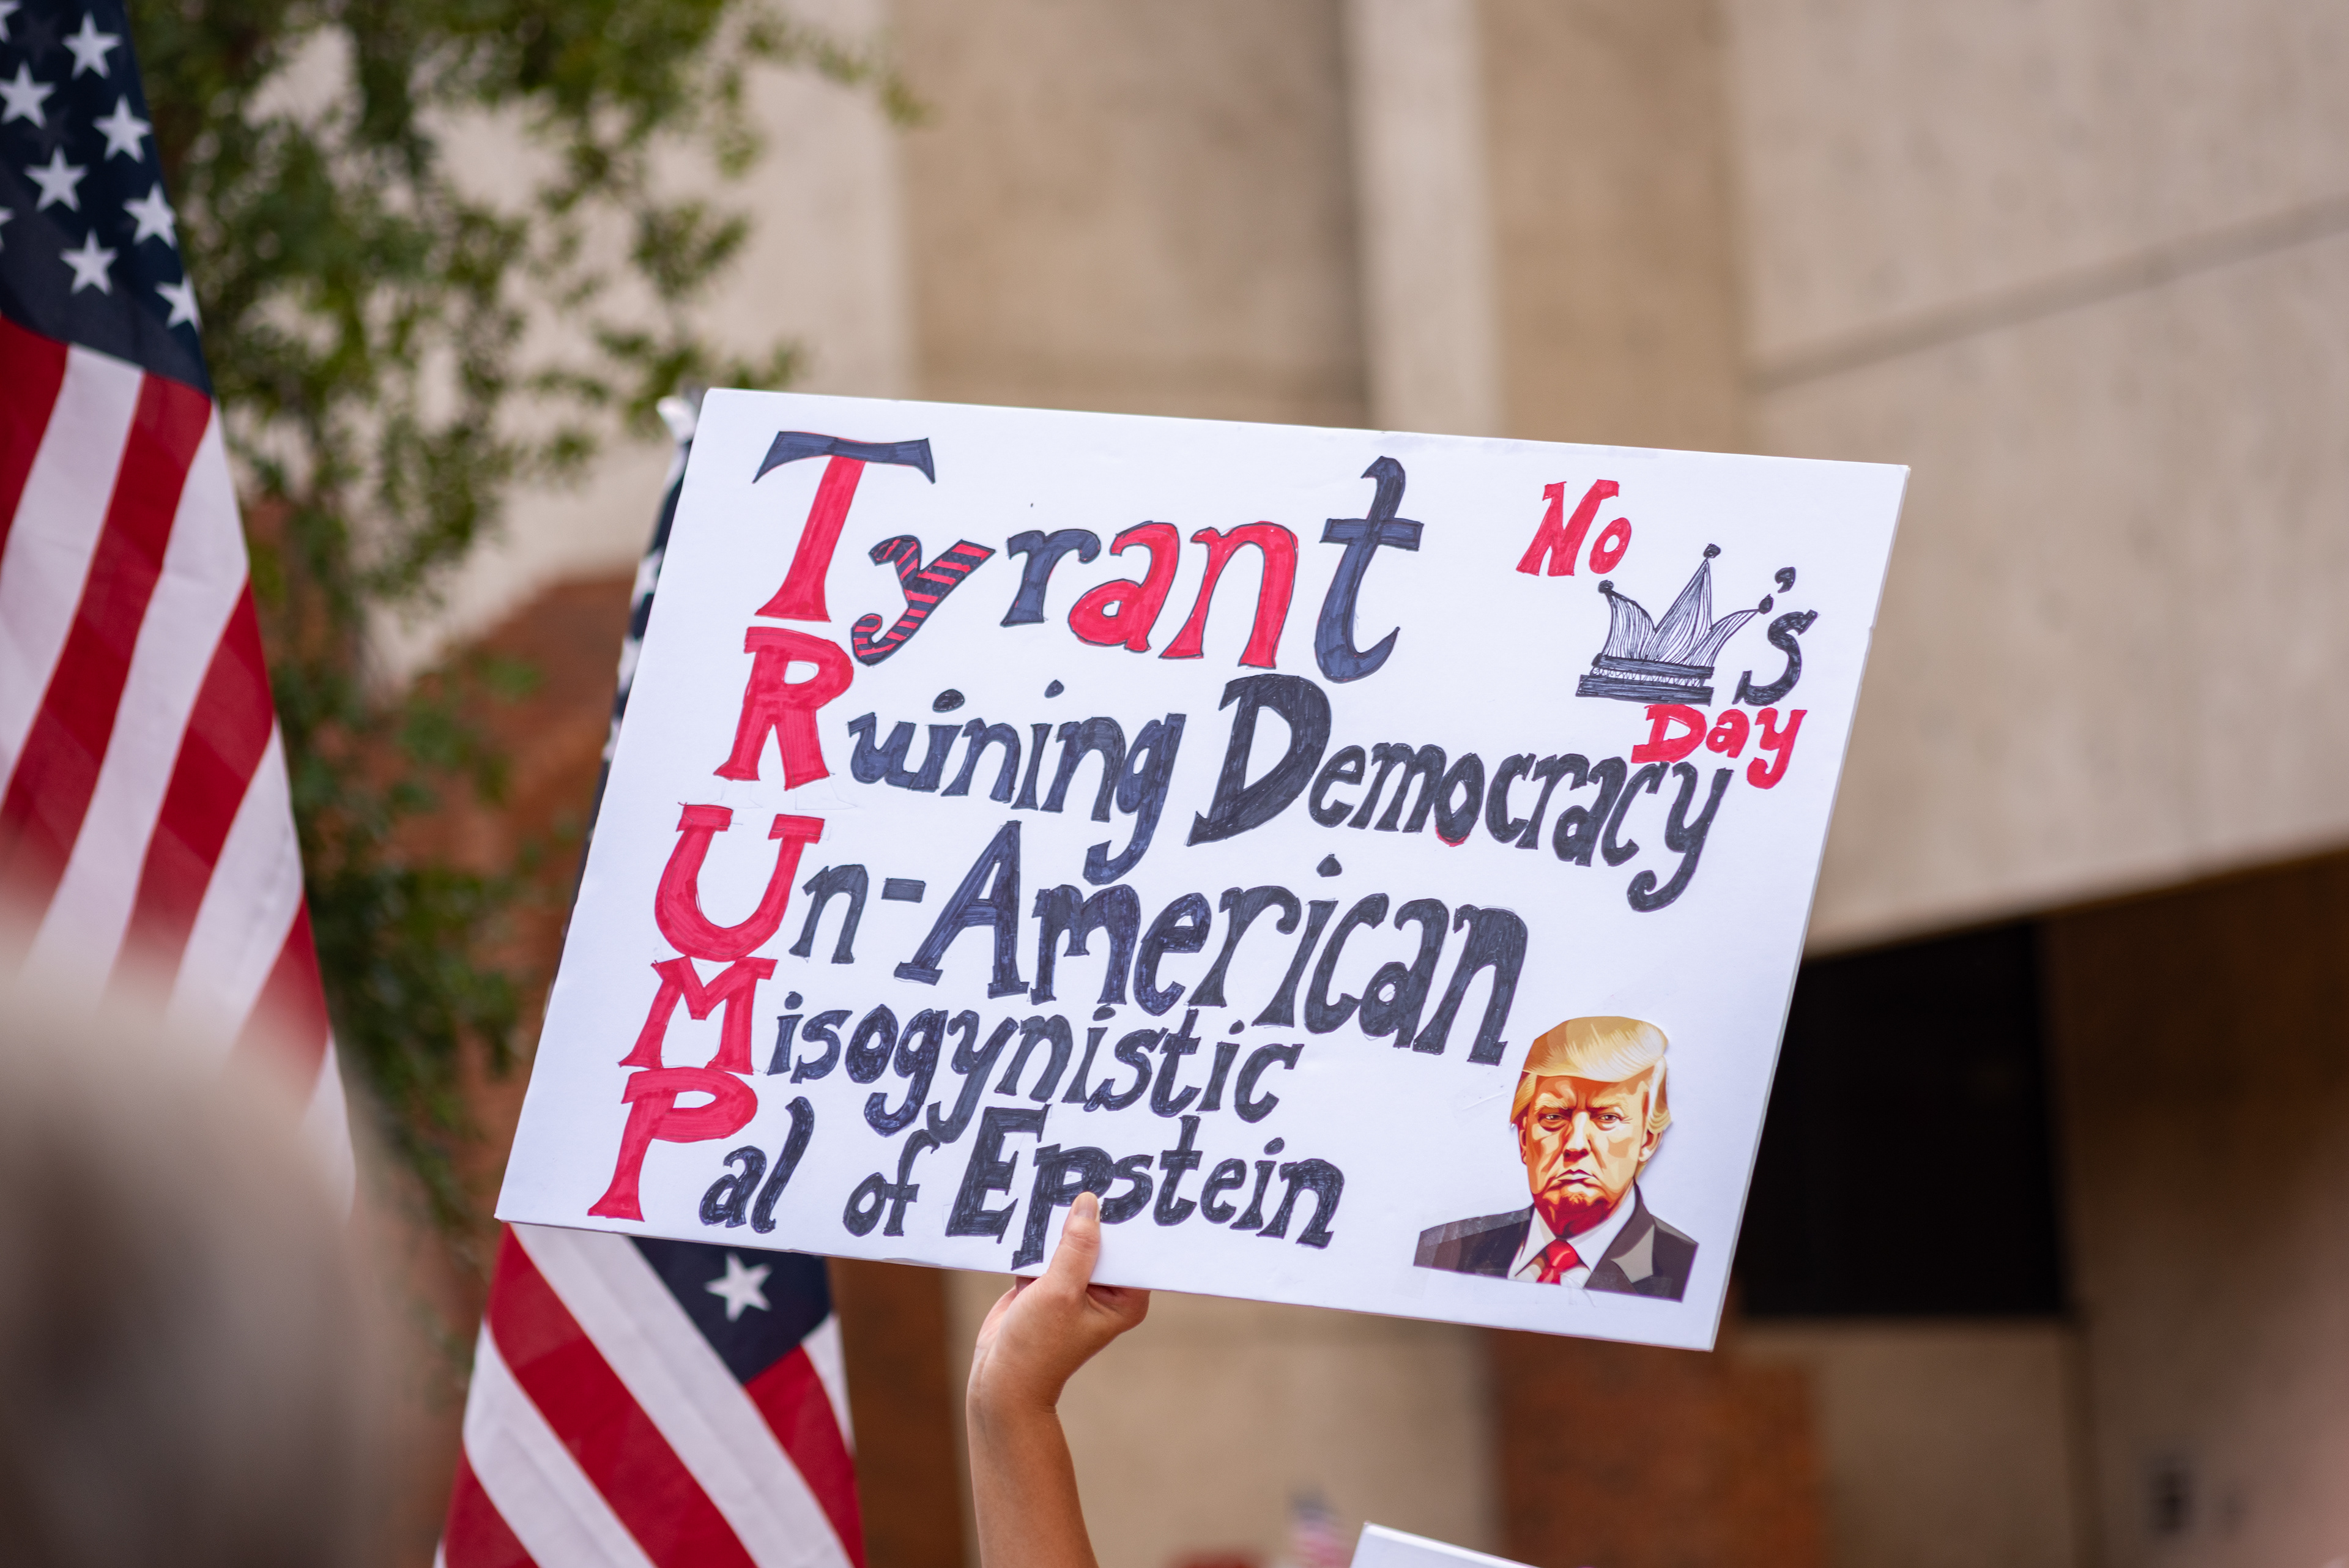 Tyrant
No 's
Day
Ruining Democracy
Un-American
Misogynistic
Pal of Epstein